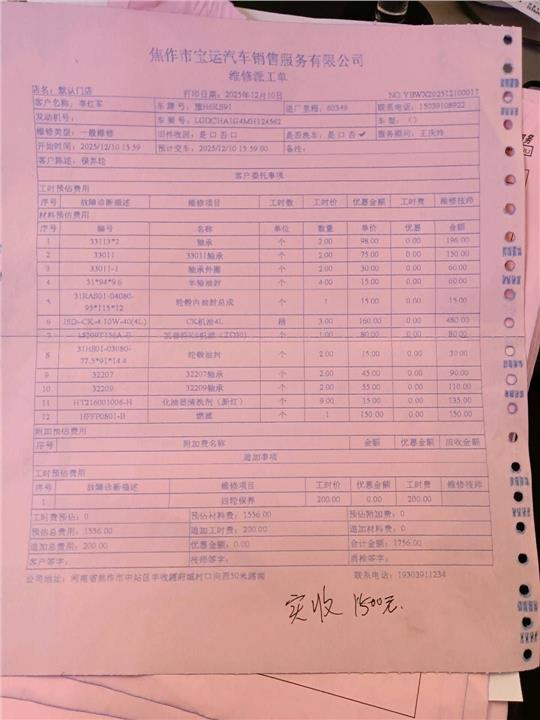 焦作市宝运汽车销售服务有限公司
维修派工单
店名：默认门店 打印日期：2025年12月10日 NO.YBWX202512100017
客户名称：李红军 车牌号：豫H6RS91 进厂里程：60349 联系电话：15039108922
发动机： 车架号：LGDCHA1G4MH124562 车型：（）
维修类型：一般维修 旧件收回：是口否口 是否洗车：是口否✓ 服务顾问：王庆玲
开始时间：2025/12/10 15:59 预计交车：2025/12/10 15:59:00 备注：
客户陈述：保养轮
客户委托事项
工时预估费用
序号 故障诊断描述 维修项目 工时数 工时价 优惠金额 工时费 维修技师
材料预估费用
序号 编号 名称 单位 数量 单价 优惠 金额
1 33113*2 轴承 个 2.00 98.00 0.00 196.00
2 33011 33011轴承 个 2.00 75.00 0.00 150.00
3 33011-1 轴承外圈 个 2.00 30.00 0.00 60.00
4 31*94*9.6 半轴油封 个 4.00 15.00 0.00 60.00
5 31RAS01-04080-95*115*12 轮毂内油封总成 个 1.00 15.00 0.00 15.00
6 ISD-CK-4 10W-40(4L) CK机油4L 桶 3.00 160.00 0.00 480.00
7 个 1.00 80.00 0.00 80.00
8 31HS01-03080-77.5*91*14.4 轮毂油封 个 2.00 15.00 0.00 30.00
9 32207 32207轴承 个 2.00 45.00 0.00 90.00
10 32209 32209轴承 个 2.00 55.00 0.00 110.00
11 HT216001006-H 化油器清洗剂（新红） 个 9.00 15.00 0.00 135.00
12 HFFP0801-B 燃滤 个 1 150.00 0.00 150.00
附加预估费用
序号 附加费名称 金额 优惠金额 应收金额
追加事项
工时预估费用
序号 故障诊断描述 维修项目 工时价 优惠金额 工时费 维修技师
1 四轮保养 200.00 0.00 200.00
工时费预估：0 预估材料费：1556.00 预估附加费：0
预估总费用：1556.00 追加工时费：200.00 追加材料费：0
追加总费用：200.00 优惠金额：0.00 合计金额：1756.00
客户签字： 技师签字： 质检签字：
公司地址：河南省焦作市中站区丰收路府城村口向西50米路南 联系电话：19303911234
实收 1500元.